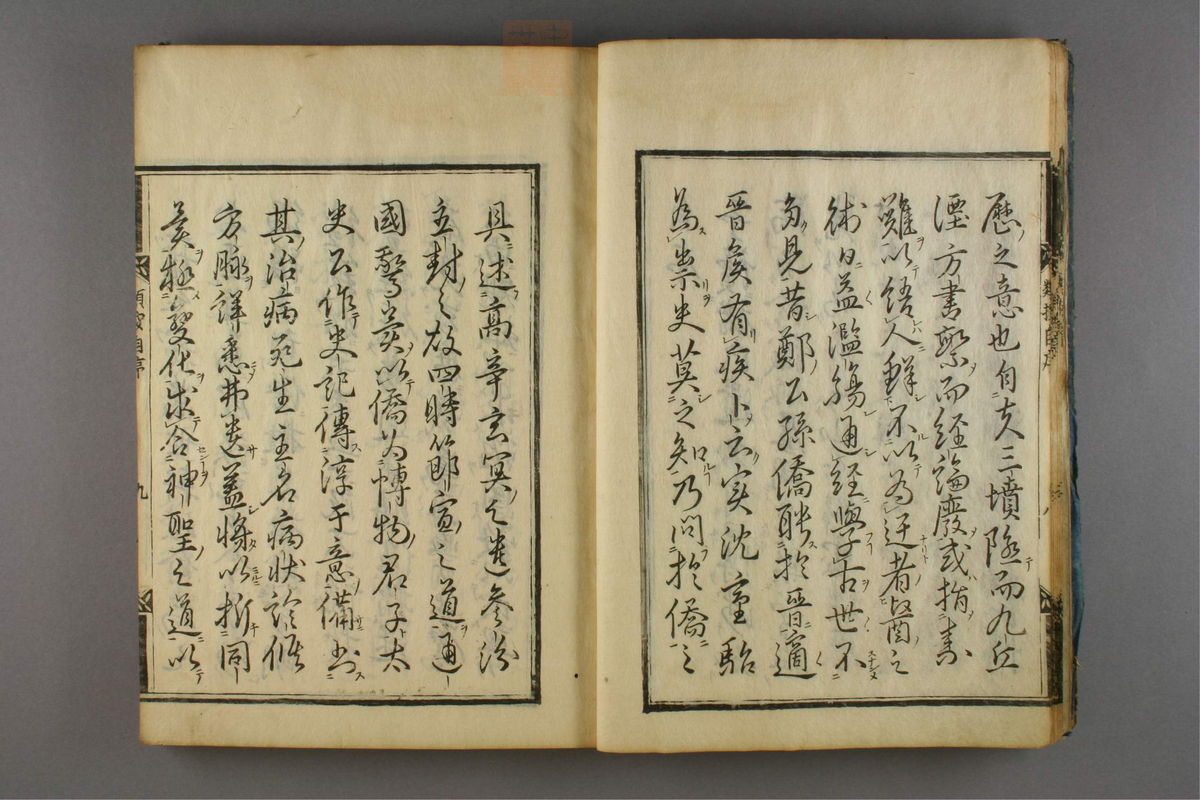 歴之意也自夫三墳隆而九丘
湮方書繁而經論廢或指素
難以語人群不以爲迂者醫之
術日益濫觴通經學古世不
多見昔鄭公孫僑聘於晉適
晉侯有疾卜云実沈臺駘
為祟史莫之知乃問於僑之
具述高辛玄冥之遺參汾
主封之故四時節宣之道通
國驚羙以僑为博物君子太
史公作史記傳淳于意備書
其治病死生主名病状診候
方脉詳悉弗遺蓋將以折同
異極變化求合神聖之道以